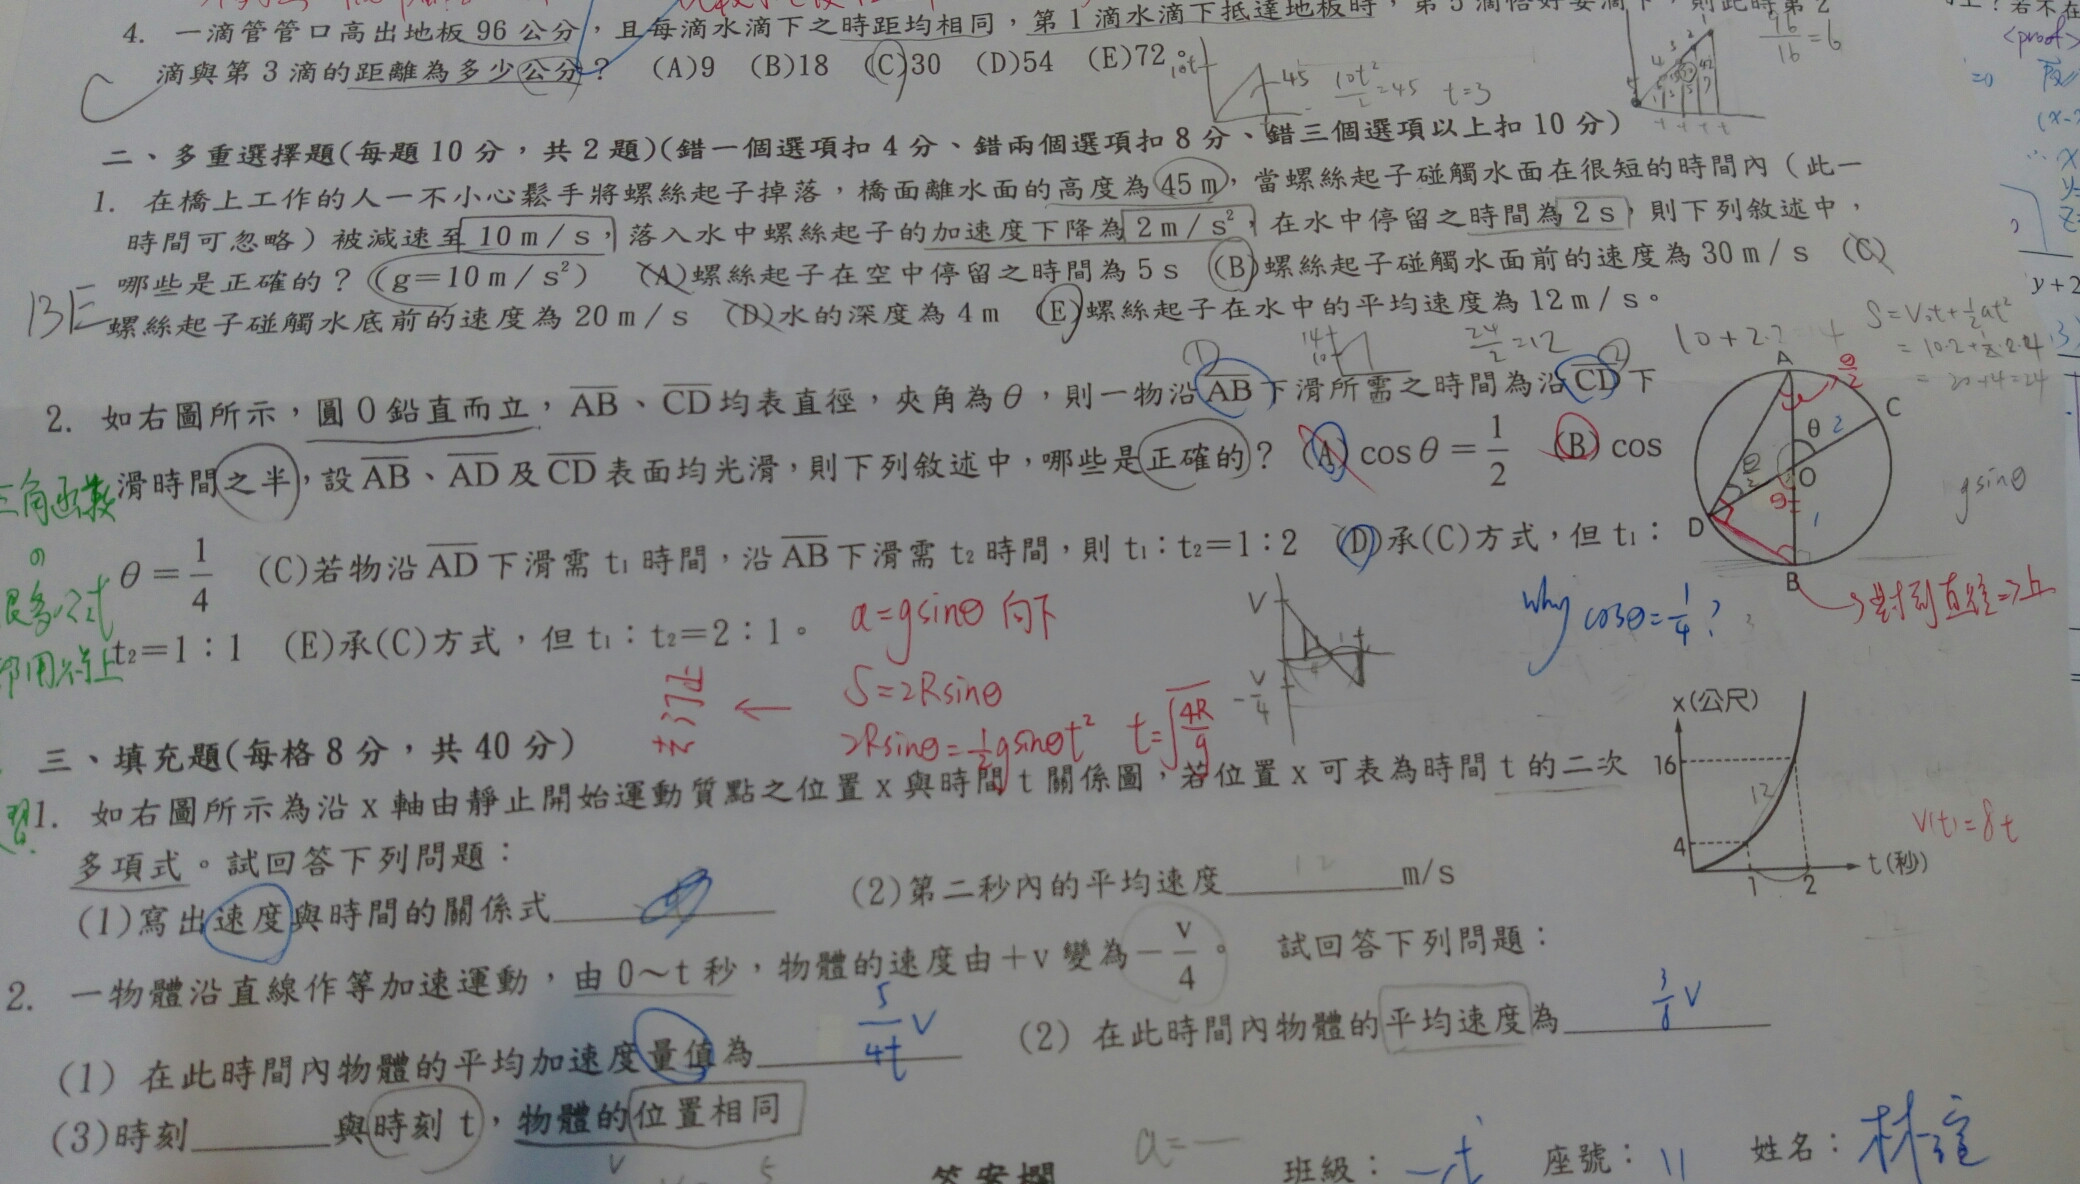 4. 一滴管管口高出地板 96 公分，且每滴水滴下之時距均相同，第 1 滴水滴下抵達地板時，第 5 滴恰好要滴下，則此時第 2
滴與第 3 滴的距離為多少公分？ (A)9 (B)18 (C)30 (D)54 (E)72。
C
10t
45
10t²/2=45 t=3
96/16=6
<proof>
二、多重選擇題(每題 10 分，共 2 題)(錯一個選項扣 4 分、錯兩個選項扣 8 分、錯三個選項以上扣 10 分)
1. 在橋上工作的人一不小心鬆手將螺絲起子掉落，橋面離水面的高度為 45 m，當螺絲起子碰觸水面在很短的時間內（此一
時間可忽略）被減速至 10 m / s，落入水中螺絲起子的加速度下降為 2 m / s²，在水中停留之時間為 2 s，則下列敘述中，
哪些是正確的？（g＝10 m / s²） (A)螺絲起子在空中停留之時間為 5 s (B)螺絲起子碰觸水面前的速度為 30 m / s (C)
螺絲起子碰觸水底前的速度為 20 m / s (D)水的深度為 4 m (E)螺絲起子在水中的平均速度為 12 m / s。
BE
24/2=12
S=V₀t+½at²
=10·2+½·2·4
=20+4=24
2. 如右圖所示，圓 O 鉛直而立，AB、CD 均表直徑，夾角為 θ，則一物沿 AB 下滑所需之時間為沿 CD 下
滑時間之半，設 AB、AD 及 CD 表面均光滑，則下列敘述中，哪些是正確的？ (A) cos θ = 1/2 (B) cos
θ = 1/4 (C)若物沿 AD 下滑需 t₁ 時間，沿 AB 下滑需 t₂ 時間，則 t₁：t₂＝1：2 (D)承(C)方式，但 t₁：
t₂＝1：1 (E)承(C)方式，但 t₁：t₂＝2：1。
A
θ/2
C
θ 2
θ/2
O
θ
1
D
B
gsinθ
why cosθ=1/4?
三角函數
a=gsinθ 向下
S=2Rsinθ
2Rsinθ=½gsinθt² t=√(4R/g)
V
t
-V/4
三、填充題(每格 8 分，共 40 分)
1. 如右圖所示為沿 x 軸由靜止開始運動質點之位置 x 與時間 t 關係圖，若位置 x 可表為時間 t 的二次
多項式。試回答下列問題：
(1)寫出速度與時間的關係式 (2)第二秒內的平均速度 12 m/s
x(公尺)
16
12
4
1
2
t(秒)
V(t)=8t
2. 一物體沿直線作等加速運動，由 0～t 秒，物體的速度由＋v 變為－v/4。 試回答下列問題：
(1) 在此時間內物體的平均加速度量值為 5/4t V (2) 在此時間內物體的平均速度為 3/8 V
(3)時刻 與時刻 t，物體的位置相同
a=—
答案欄
班級： 座號：11 姓名：